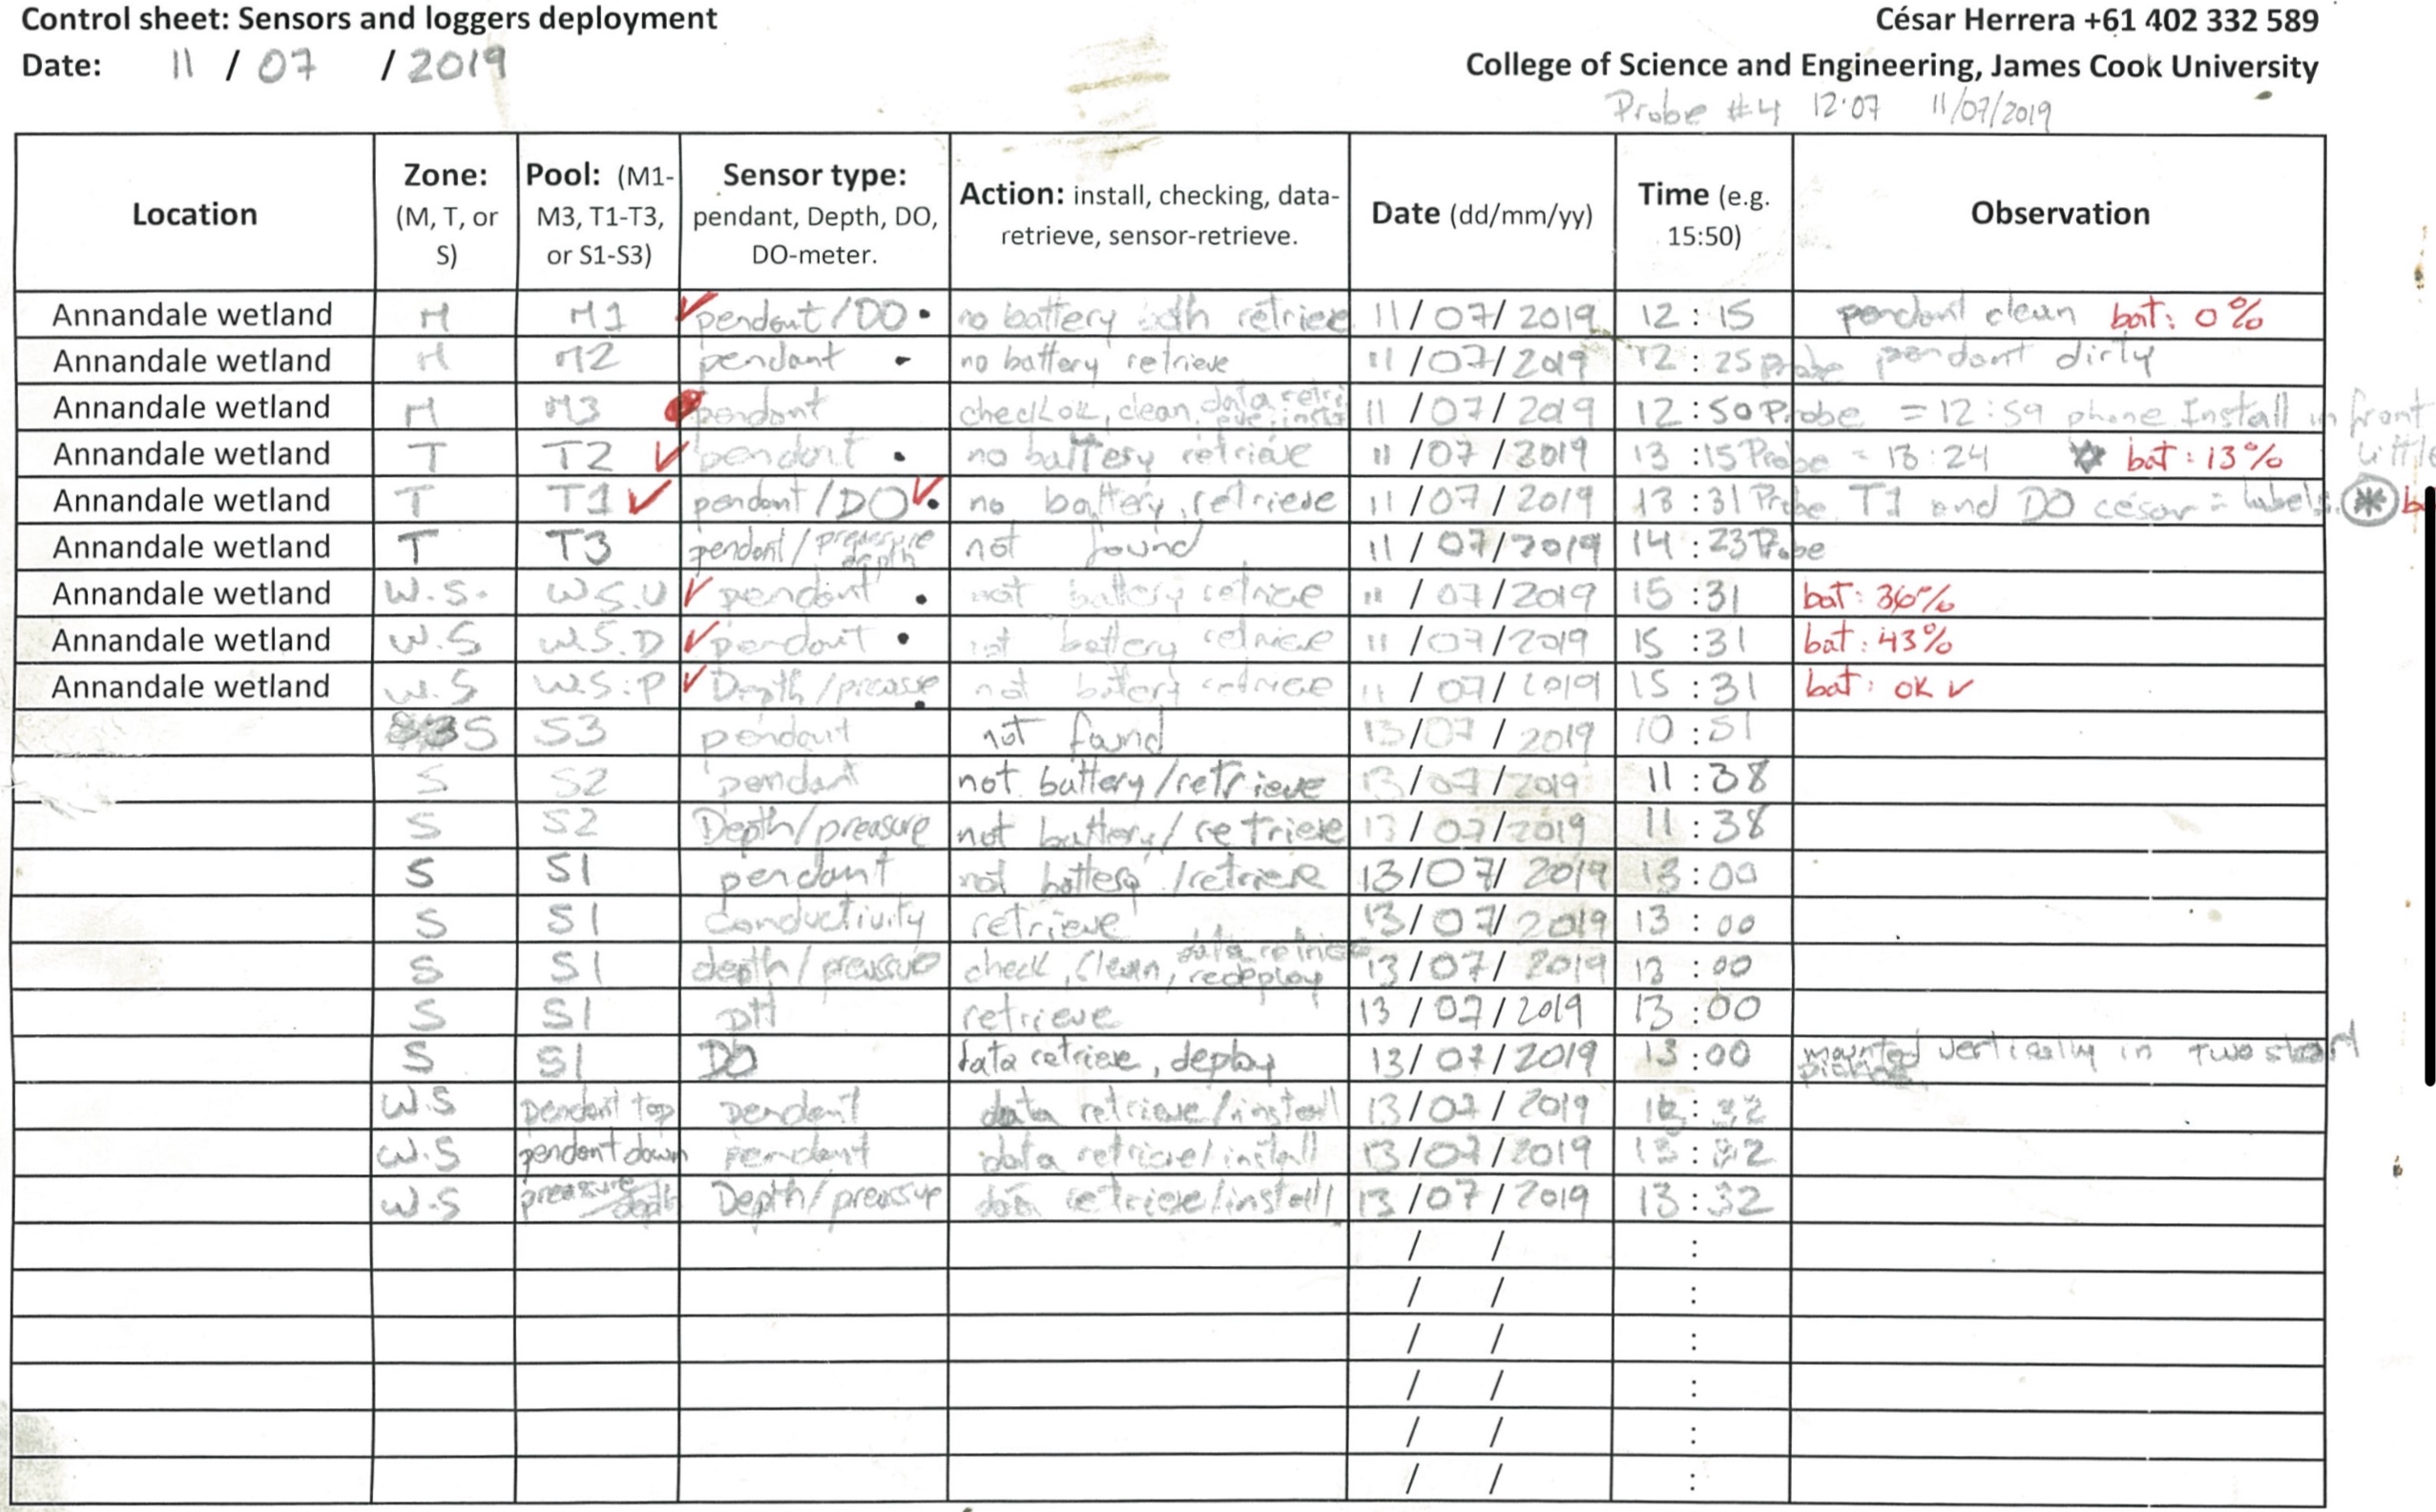 Control sheet: Sensors and loggers deployment César Herrera +61 402 332 589
Date: 11 / 07 / 2019 College of Science and Engineering, James Cook University
Probe #4 12:07 11/07/2019
Location Zone: (M, T, or S) Pool: (M1-M3, T1-T3, or S1-S3) Sensor type: pendant, Depth, DO, DO-meter. Action: install, checking, data-retrieve, sensor-retrieve. Date (dd/mm/yy) Time (e.g. 15:50) Observation
Annandale wetland M M1 ✓ pendant/DO • no battery both retrieve 11/07/2019 12:15 pendant clean bat: 0%
Annandale wetland M M2 pendant - no battery retrieve 11/07/2019 12:25 Probe pendant dirty
Annandale wetland M M3 pendant check ok, clean, data retrieve, 11/07/2019 12:50 Probe = 12:59 phone Install in front
Annandale wetland T T2 ✓ pendant • no battery retrieve 11/07/2019 13:15 Probe = 13:24 bat: 13% little
Annandale wetland T T1 ✓ pendant/DO ✓ • no battery, retrieve 11/07/2019 13:31 Probe T1 and DO césar = labels.
Annandale wetland T T3 pendant/ depth not found 11/07/2019 14:23 Probe
Annandale wetland W.S. WS.U ✓ pendant • not battery retrieve 11/07/2019 15:31 bat: 36%
Annandale wetland W.S W.S.D ✓ pendant • not battery retrieve 11/07/2019 15:31 bat: 43%
Annandale wetland W.S W.S:P ✓ Depth/ • not battery retrieve 11/07/2019 15:31 bat: OK ✓
S S3 pendant not found 13/07/2019 10:51
S S2 pendant not battery/retrieve 13/07/2019 11:38
S S2 Depth/preasure not battery/retrieve 13/07/2019 11:38
S S1 pendant not battery/retrieve 13/07/2019 13:00
S S1 Conductivity retrieve 13/07/2019 13:00
S S1 depth/preasure check, clean, data retrieve, redeploy 13/07/2019 13:00
S S1 pH retrieve 13/07/2019 13:00
S S1 DO data retrieve, deploy 13/07/2019 13:00 mounted vertically in two
W.S pendant top pendant data retrieve/install 13/07/2019
W.S pendant down pendant data retrieve/install 13/07/2019 13:32
W.S preassure depth Depth/preassure data retrieve/install 13/07/2019 13:32
/ / :
/ / :
/ / :
/ / :
/ / :
/ / :